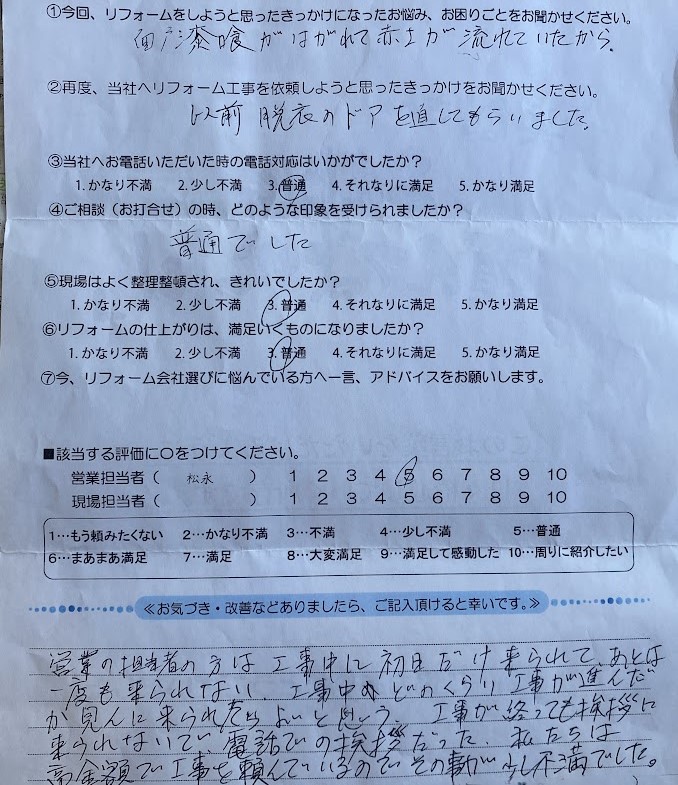 ①今回、リフォームをしようと思ったきっかけになったお悩み、お困りごとをお聞かせください。
面戸漆喰がはがれて赤土が流れていたから。
②再度、当社へリフォーム工事を依頼しようと思ったきっかけをお聞かせください。
以前 脱衣のドアを直してもらいました。
③当社へお電話いただいた時の電話対応はいかがでしたか?
1.かなり不満 2.少し不満 3.普通 4.それなりに満足 5.かなり満足
④ご相談(お打合せ)の時、どのような印象を受けられましたか?
普通でした
⑤現場はよく整理整頓され、きれいでしたか?
1.かなり不満 2.少し不満 3.普通 4.それなりに満足 5.かなり満足
⑥リフォームの仕上がりは、満足いくものになりましたか?
1.かなり不満 2.少し不満 3.普通 4.それなりに満足 5.かなり満足
⑦今、リフォーム会社選びに悩んでいる方へ一言、アドバイスをお願いします。
■該当する評価に○をつけてください。
営業担当者( 松永 ) 1 2 3 4 5 6 7 8 9 10
現場担当者( ) 1 2 3 4 5 6 7 8 9 10
1…もう頼みたくない 2…かなり不満 3…不満 4…少し不満 5…普通
6…まあまあ満足 7…満足 8…大変満足 9…満足して感動した 10…周りに紹介したい
≪お気づき・改善などありましたら、ご記入頂けると幸いです。≫
営業の担当者の方は工事中に初日だけ来られて、あとは
一度も来られない、工事中もどのくらい工事が進んだ
か見んに来られたらよいと思う、工事が終っても挨拶に
来られないで、電話での挨拶だった、私たちは
高金額で工事を頼んでいるのでその事が少し不満でした。